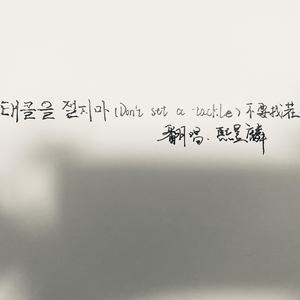 태클을 걸지마 (Don't set a tackle) 不要找茬
翻唱:熙昱麟